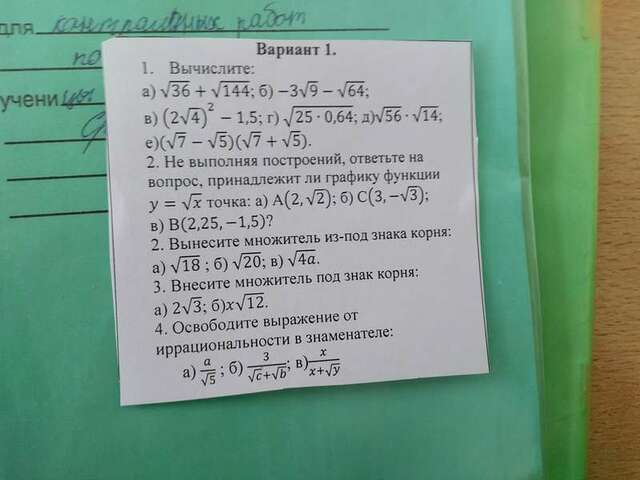 для контрольных работ
по
учени цы
Вариант 1.
1. Вычислите:
а) √36 + √144; б) −3√9 − √64;
в) (2√4)² − 1,5; г) √(25 · 0,64; д)√56 · √14;
е)(√7 − √5)(√7 + √5).
2. Не выполняя построений, ответьте на
вопрос, принадлежит ли графику функции
y = √x точка: а) А(2, √2); б) С(3, −√3);
в) В(2,25, −1,5)?
2. Вынесите множитель из-под знака корня:
а) √18 ; б) √20; в) √4a.
3. Внесите множитель под знак корня:
а) 2√3; б)x√12.
4. Освободите выражение от
иррациональности в знаменателе:
а) a/√5 ; б) 3/(√c+√b); в) x/(x+√y)